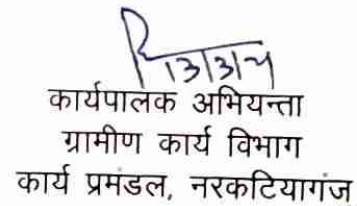 कार्यपालक अभियन्ता
ग्रामीण कार्य विभाग
कार्य प्रमंडल, नरकटियागंज